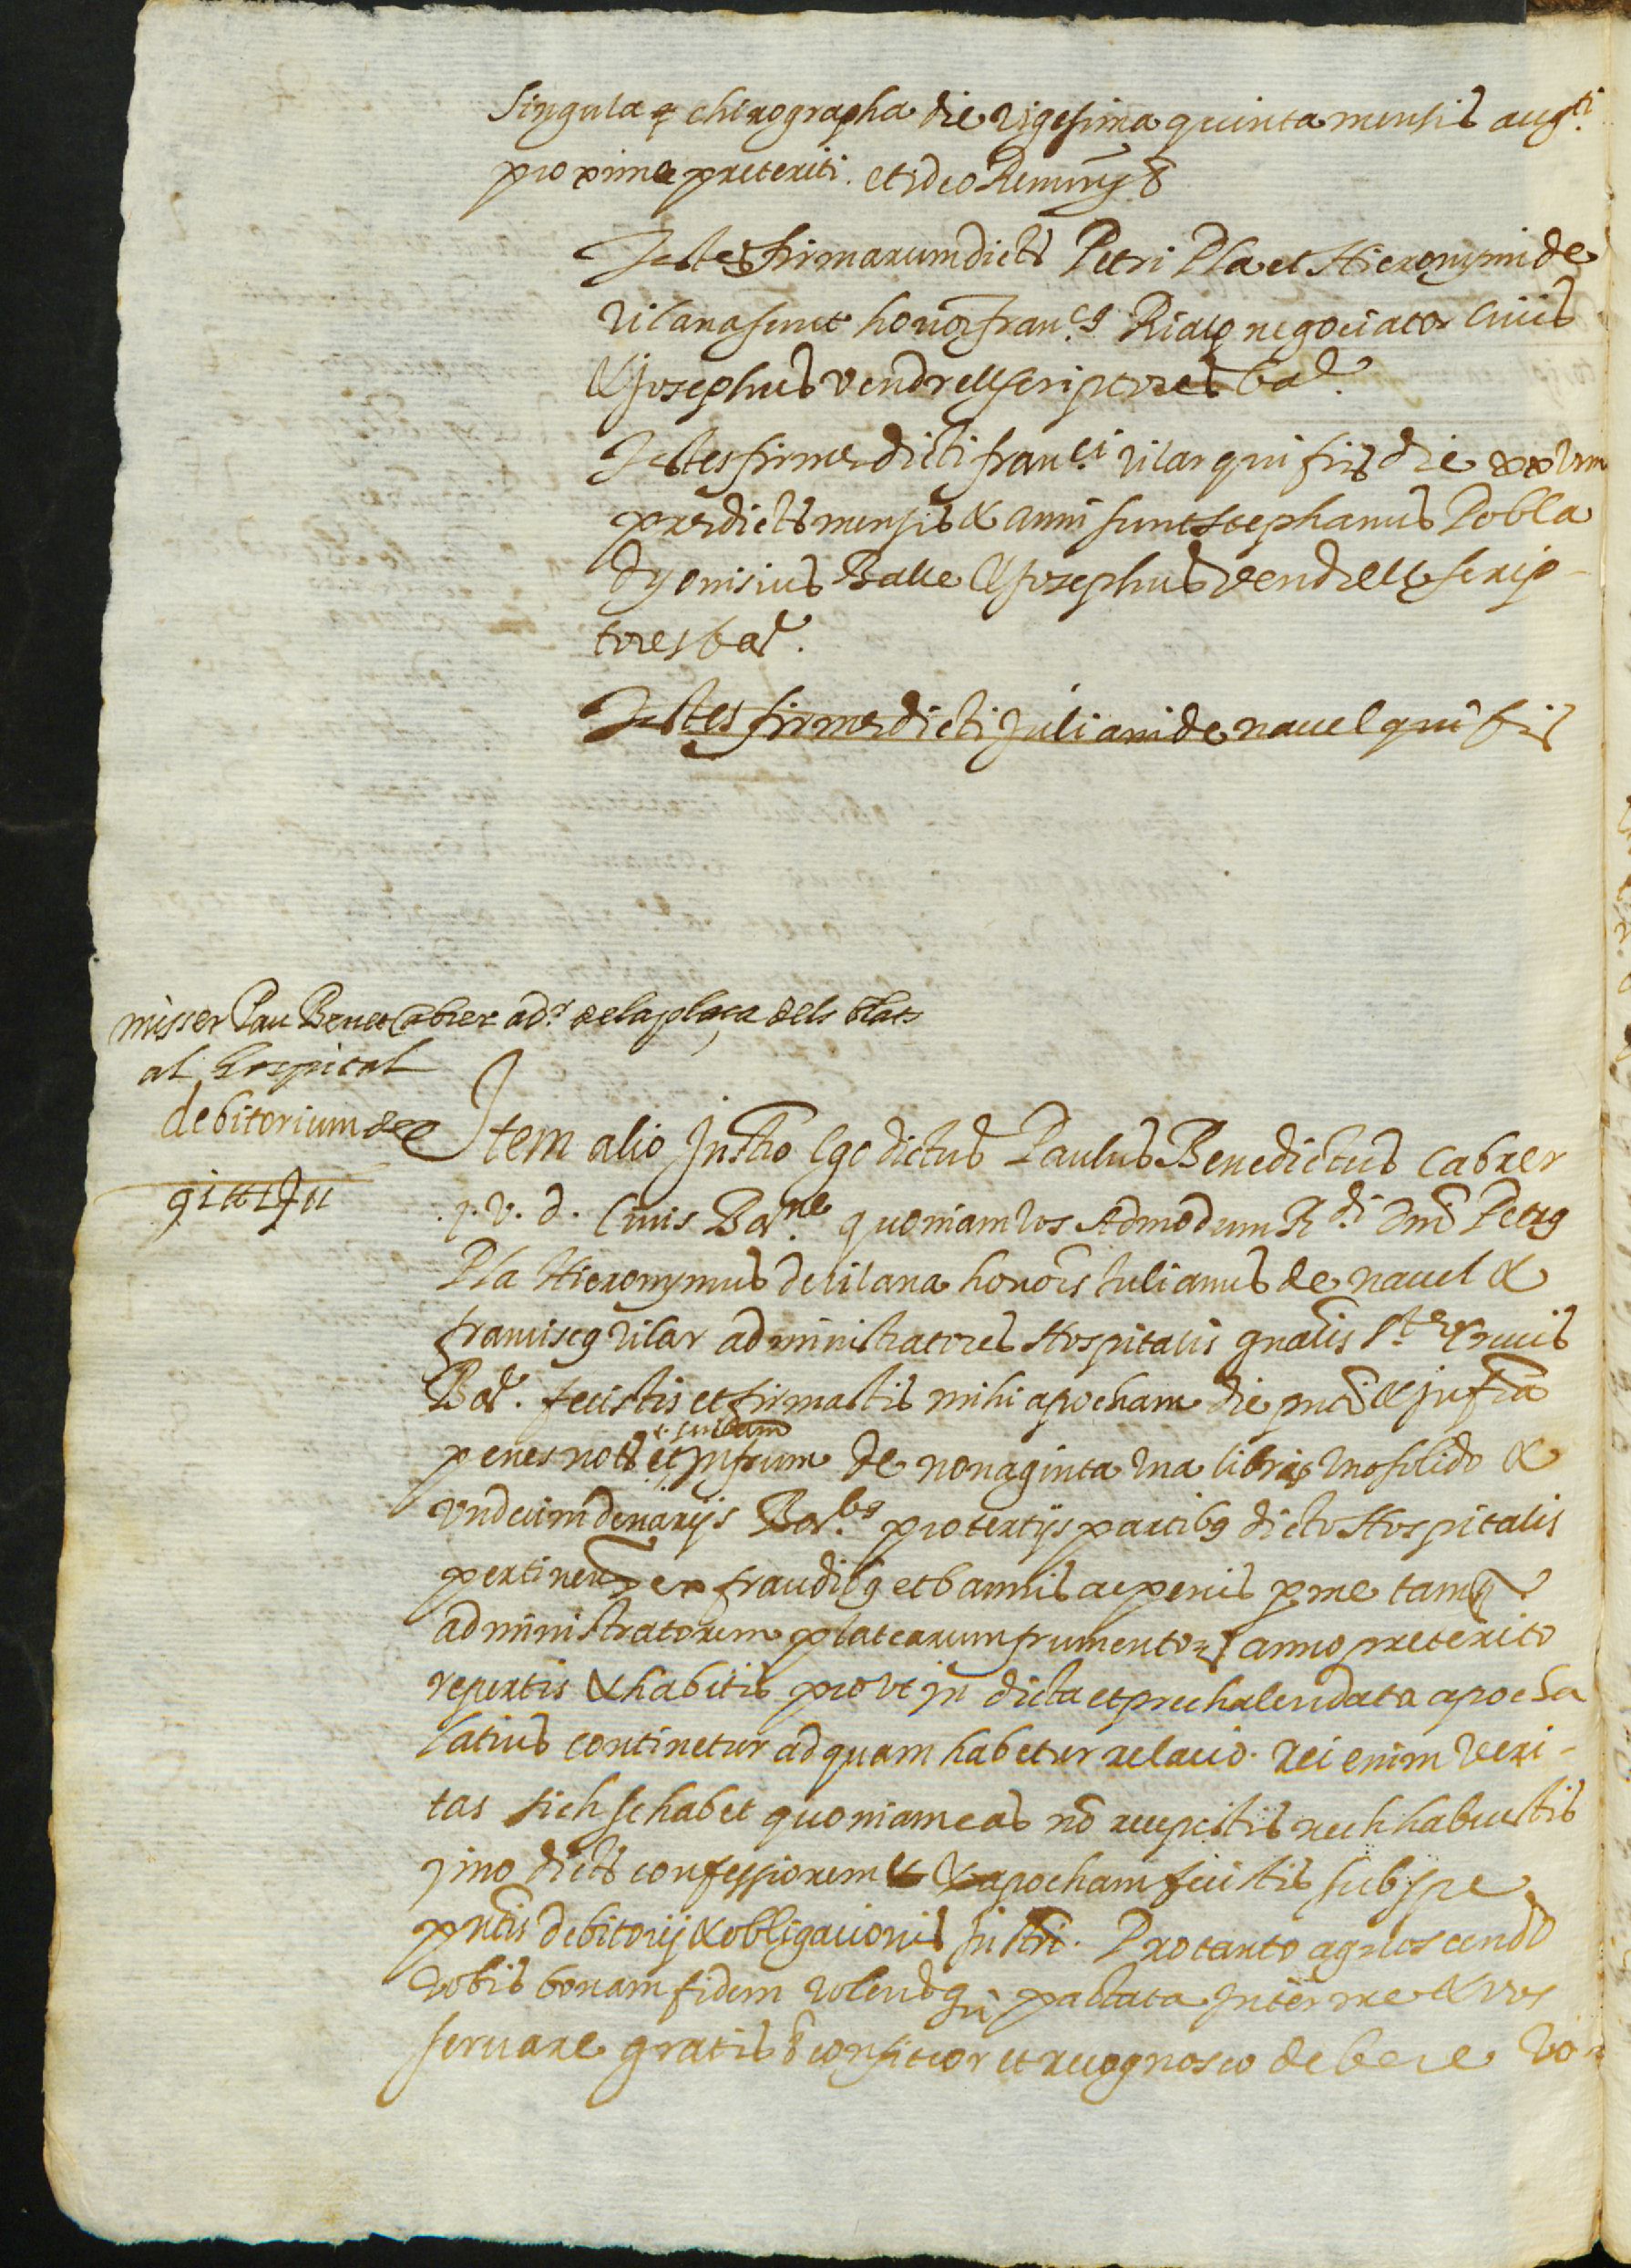 singula & chirographa die vigesima quinta mensis augti
proxime preteriti. et ideo Renunj &
Testes firmarum dictz Petri Pla et Hieronymi de
vilana sunt honor franc9 Rialp negociator Civis
& Josephus vendrell scriptores bar.
Testes firme dicti franci vilar qui fir die xxvim
predictz mensis & anni sunt stephanus Pobla
dyonisius Balle & Josephus vendrell scrip-
tores bar.
Testes firme dicti Juliani de navel qui fir
misser Pau Benet Cabrer adr de la plaça dels blats
al hospital
debitorium de
Item alio Instro Ego dictus Paulus Benedictus Cabrer
.J.V.d. Civis Barne quoniam vos Admodum Rdi dni Petr9
Pla Hieronymus de vilana honors Julianus de navel &
francisc9 vilar administratores Hospitalis gnalis Ste Crucis
Bar. fecistis et firmastis mihi apocham die pnti & jnfra
penes nots et jnfrum de nonaginta una libris uno solido &
undecim denarijs Barbs pro tertijs partib9 dicto Hospitalis
pertinen ex fraudib9 et bannis ac penis p me tamq
administratorem platearum frumentor anno preterito
repertis & habitis prout jn dicta et prechalendata apocha
latius continetur ad quam habetur relacio. Rei enim veri-
tas sich se habet quoniam eas no recepistis nech habuistis
jmo dictz confessionem & apocham fecistis sub spe
pntis debitorij & obligacionis jnstri. Pro tanto agnoscendo
vobis bonam fidem volensq pactata jnter me & vos
servare gratis & confiteor et recognosco debere vo-